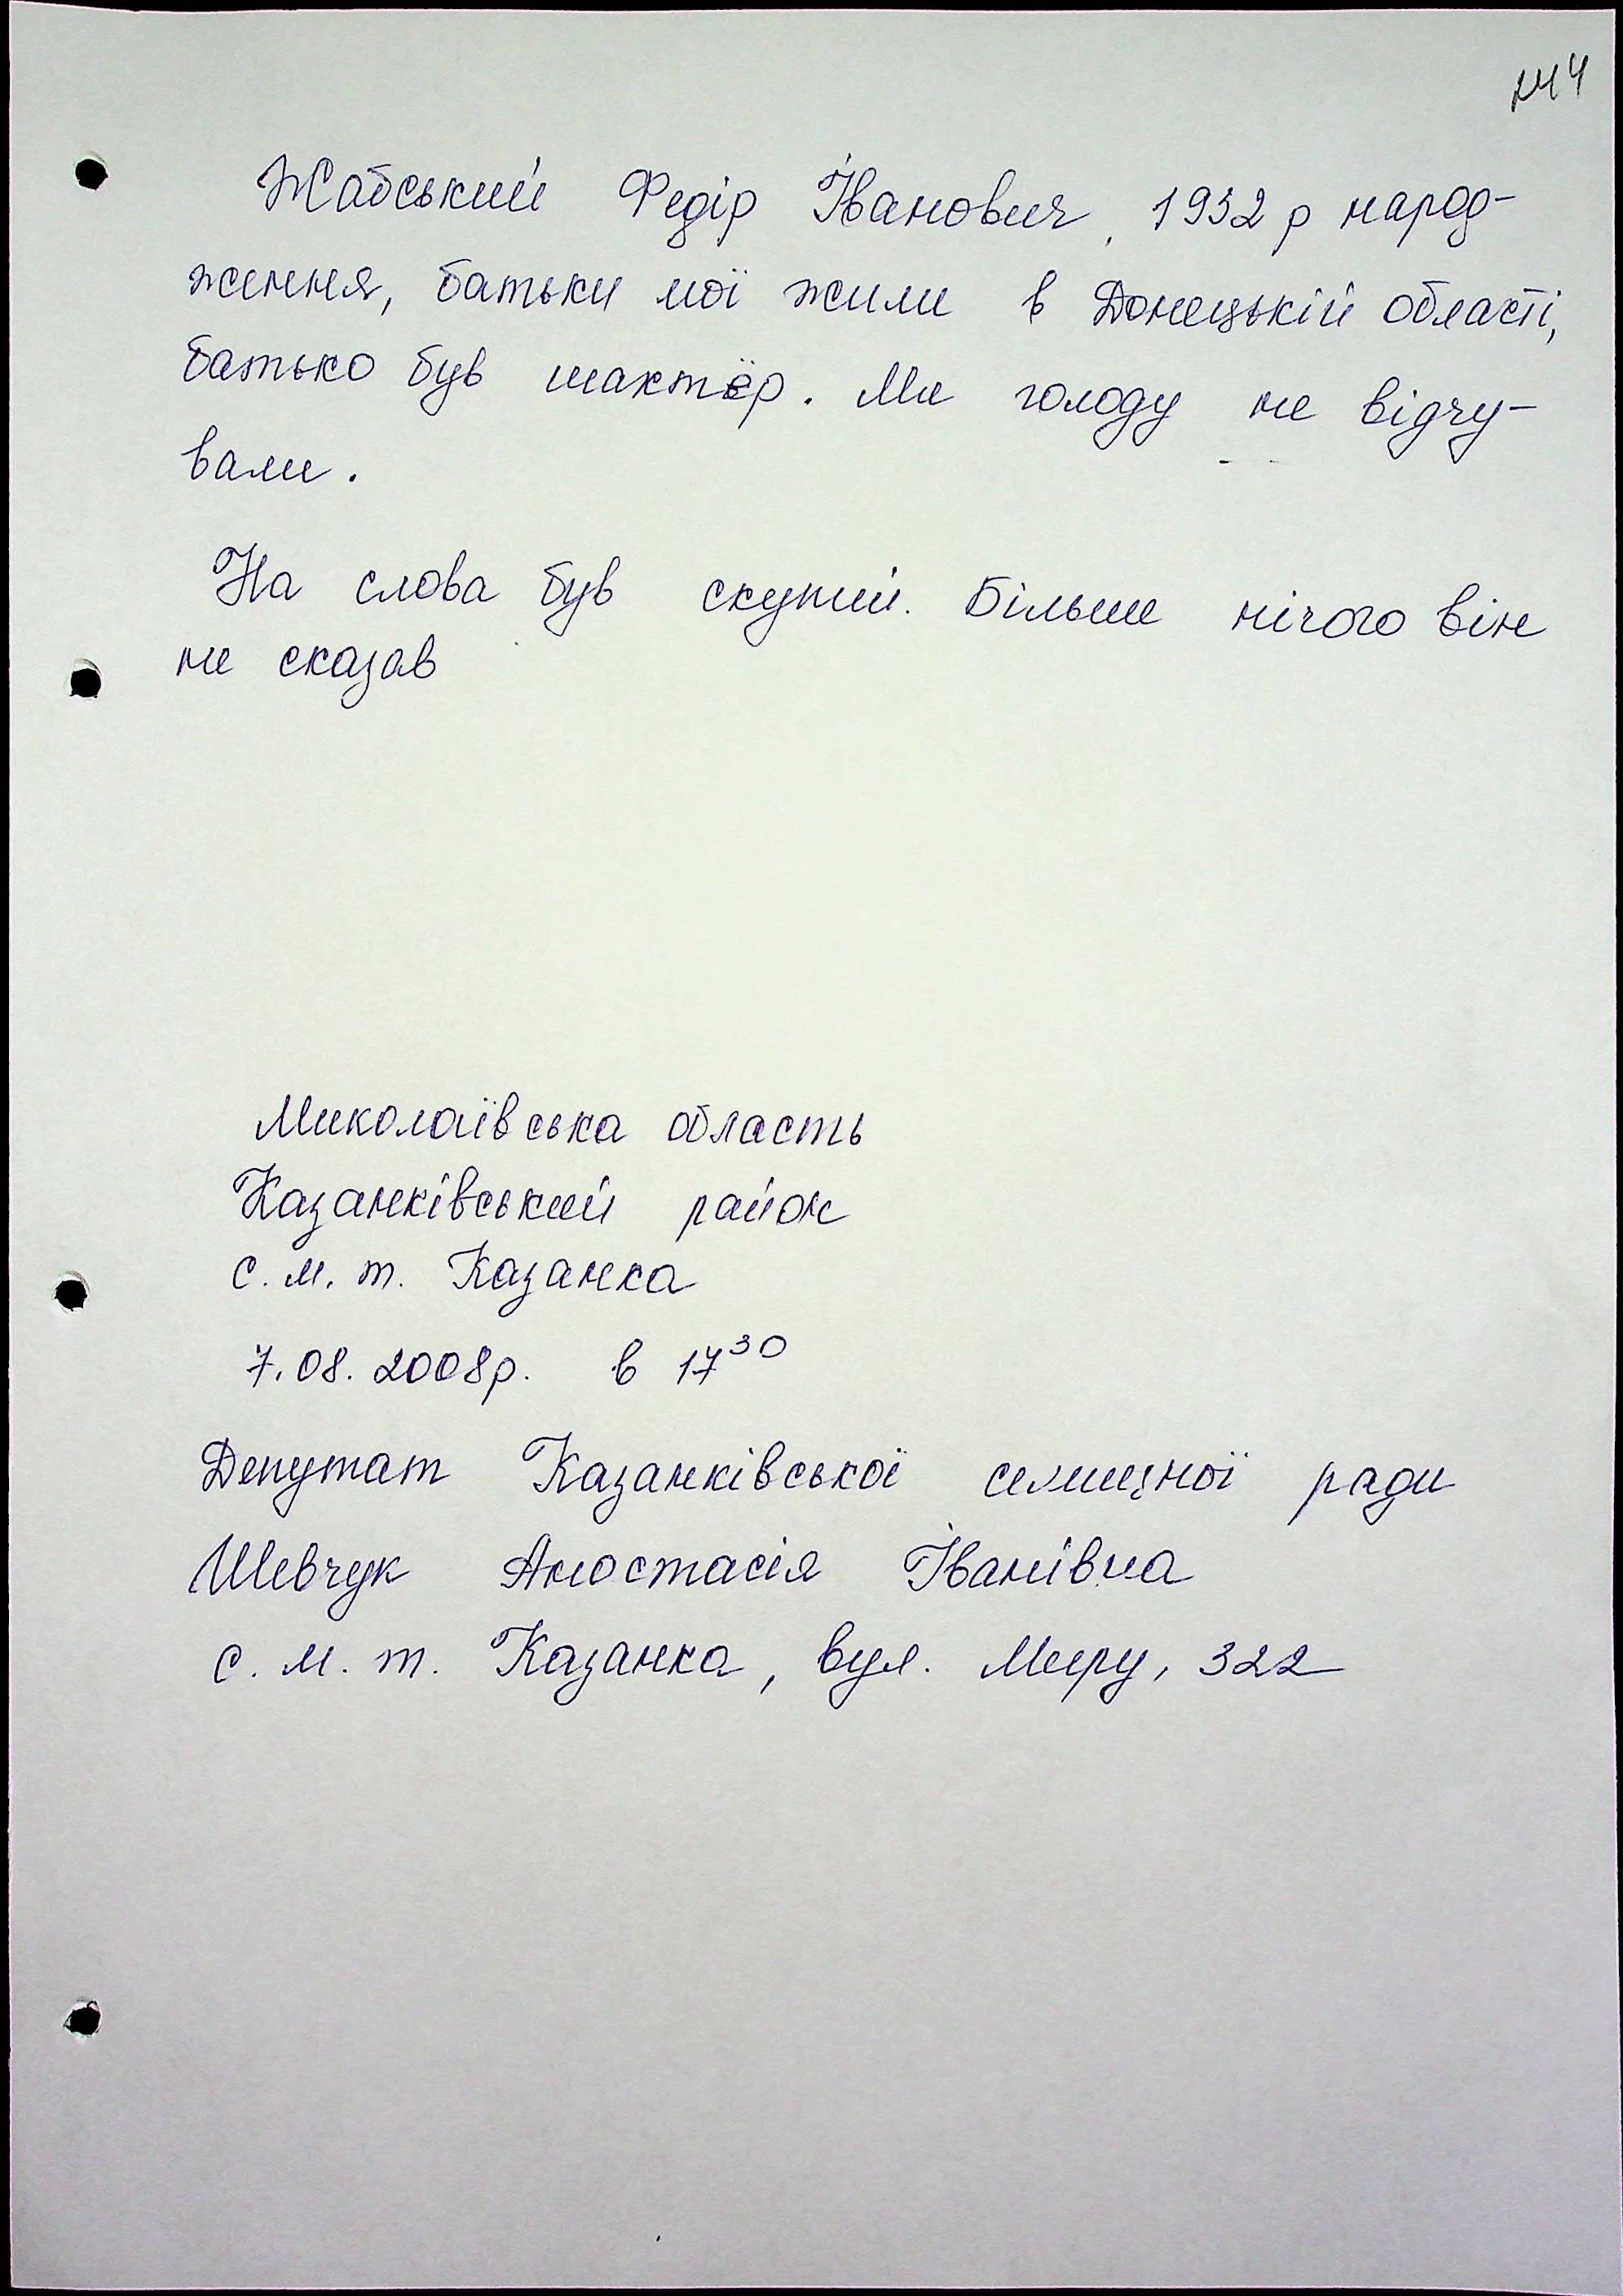 244
Жабський Федір Іванович, 1932 р народ-
ження, батьки мої жили в Донецькій області,
батько був шахтёр. Ми голоду не відчу-
вали.
На слова був скупий. Більше нічого він
не сказав
Миколаївська область
Казанківський район
с. м. т. Казанка
7.08.2008р. в 17³⁰
Депутат Казанківської селищної ради
Шевчук Аностасія Іванівна
с. м. т. Казанка, вул. Миру, 322